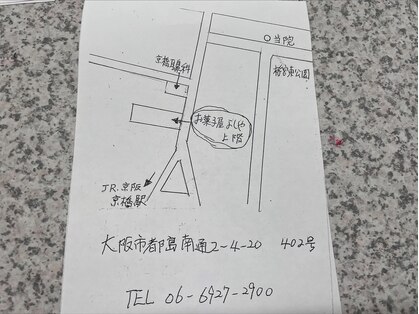 当院
京橋眼科
桜宮東公園
お菓子屋よしや
上階
JR.京阪
京橋駅
大阪市都島南通2-4-20 402号
TEL 06-6927-2900